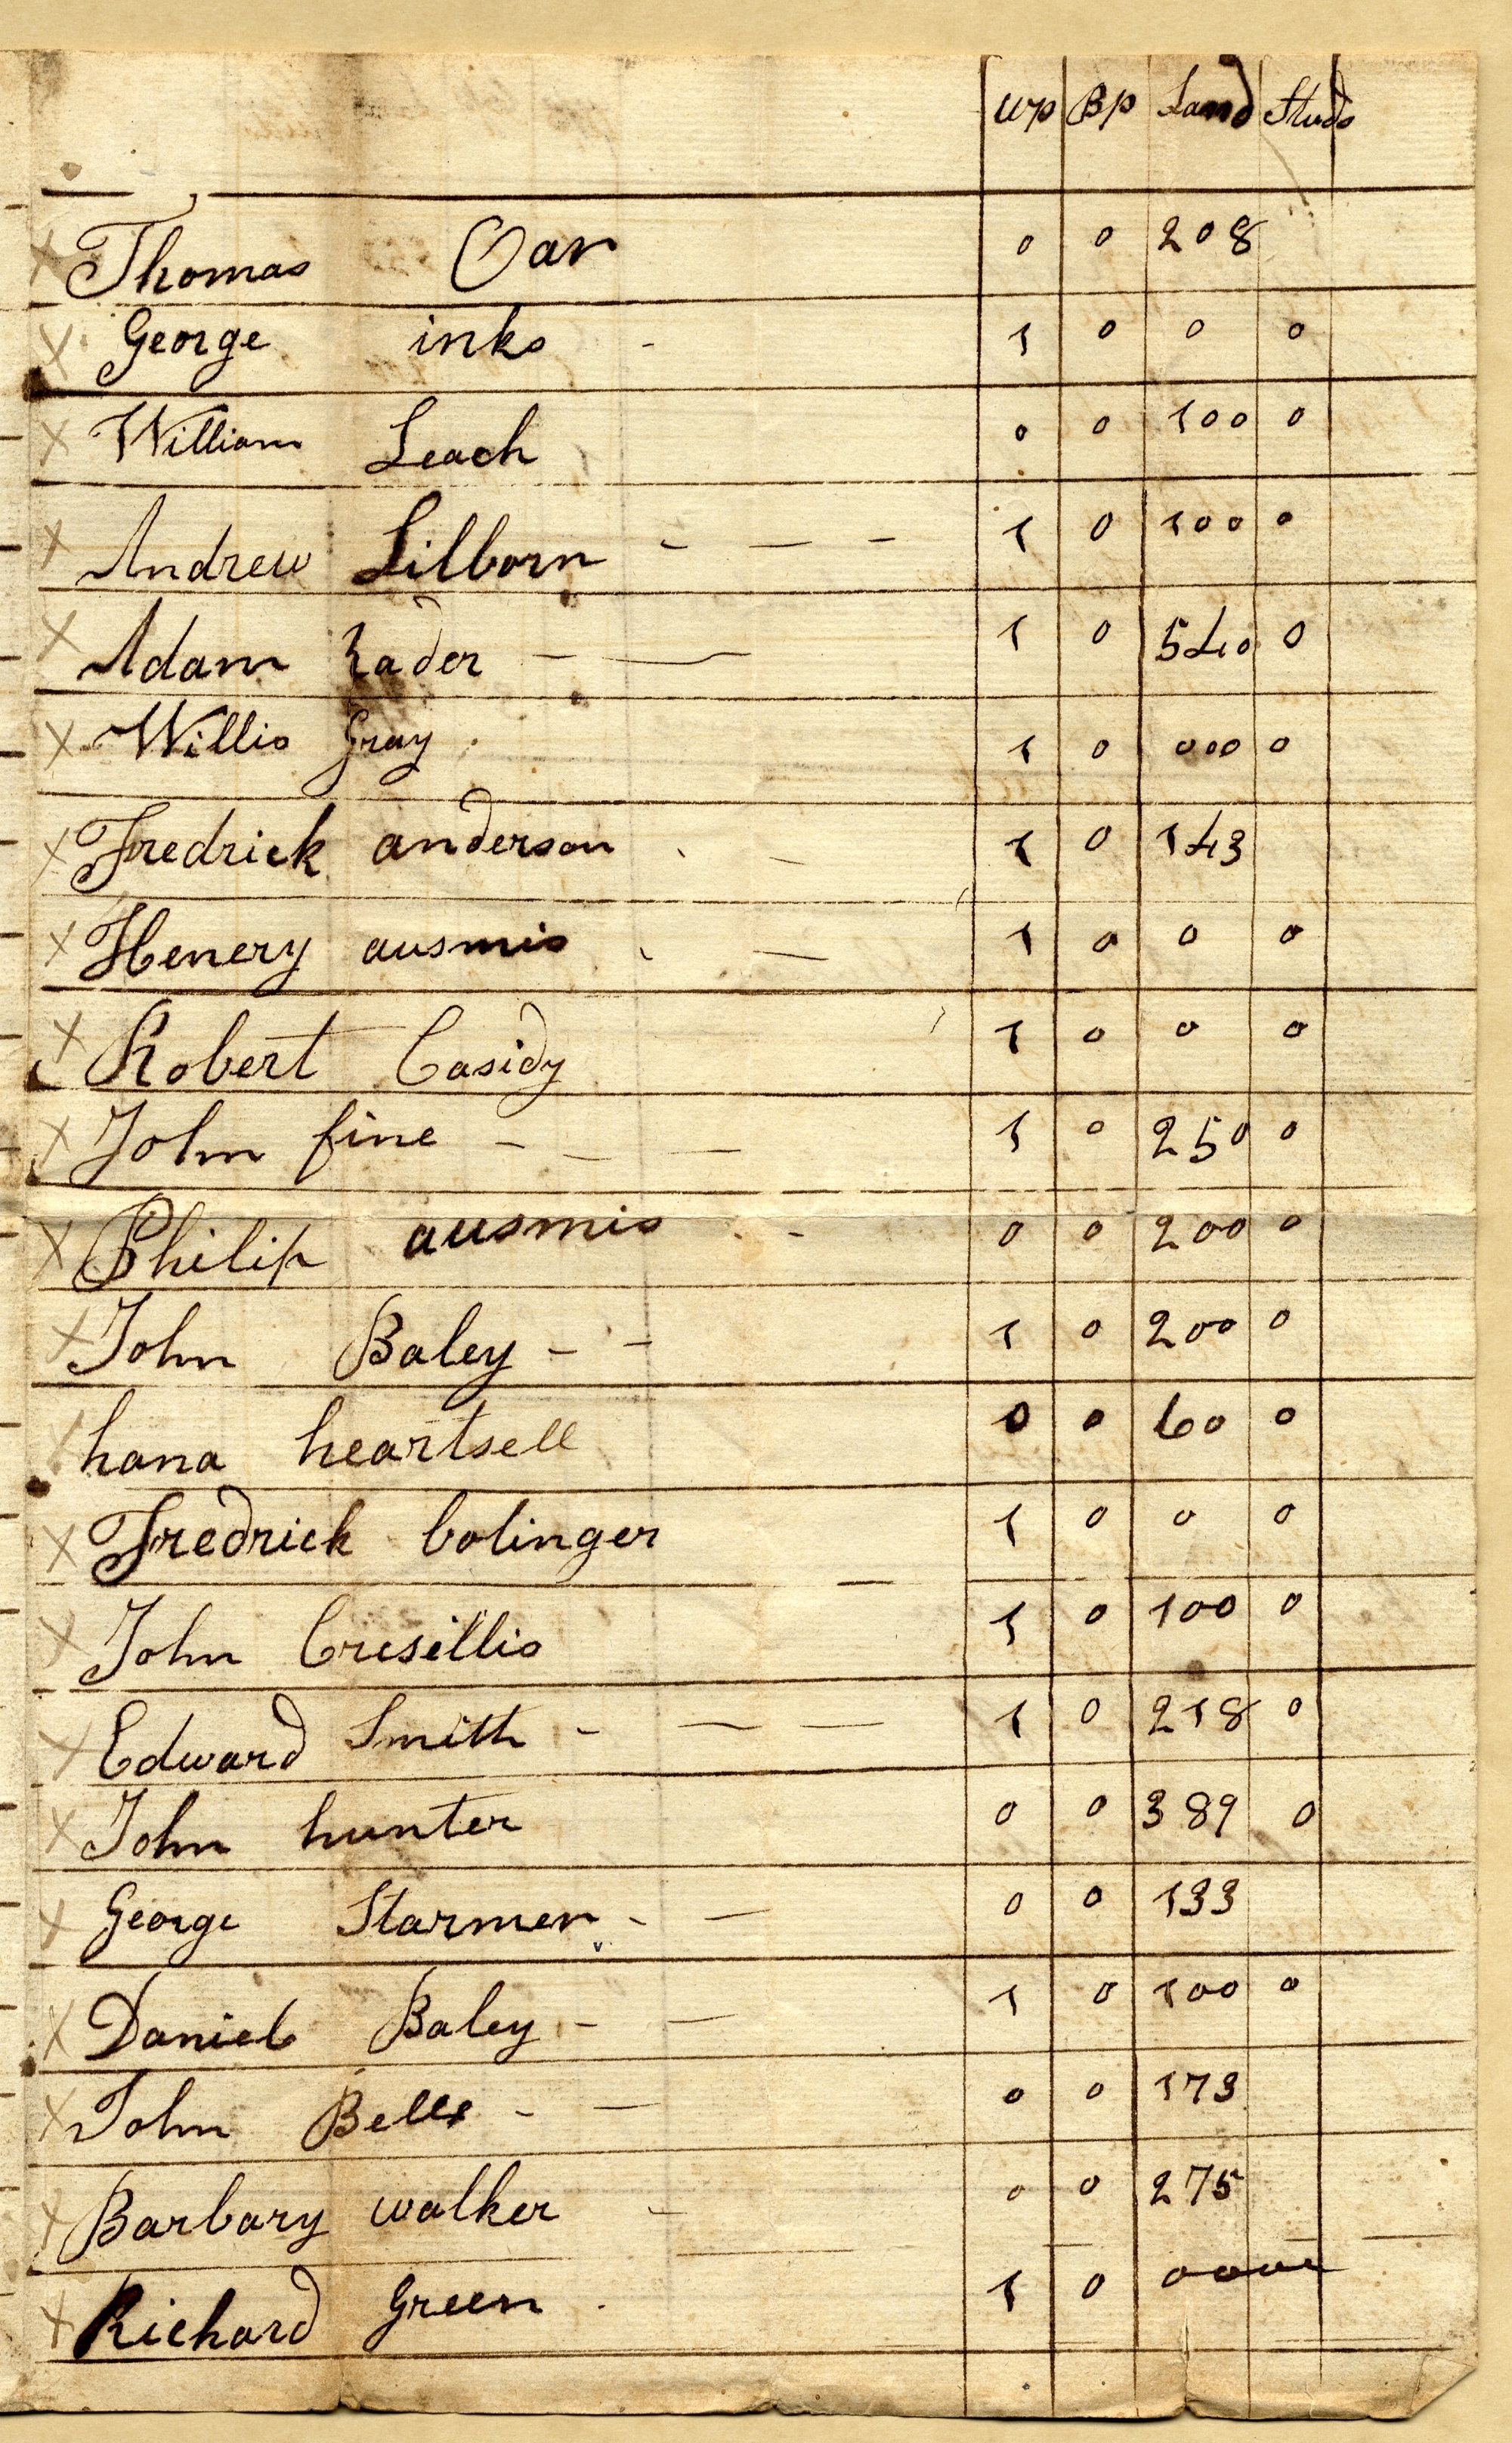 Wp Bp Land Studs
x Thomas Oar 0 0 208
x George inks - 1 0 0 0
x William Leach 0 0 100 0
x Andrew Lilborn - - - 1 0 100 0
x Adam Rader - - 1 0 540 0
x Willis Gray 1 0 000 0
x Fredrick anderson - 1 0 143
x Henery ausmis - 1 0 0 0
x Robert Casidy 1 0 0 0
x John fine - - - 1 0 250 0
x Philip ausmis - 0 0 200 0
x John Baley - - 1 0 200 0
x hana heartsell 0 0 60 0
x Fredrick bolinger 1 0 0 0
x John Cresillis 1 0 100 0
x Edward Smith - - - 1 0 218 0
x John hunter 0 0 389 0
x George Starmer - - 0 0 133
x Daniel Baley - - 1 0 100 0
x John Bell - - 0 0 173
x Barbary walker - 0 0 275
x Richard Green 1 0 0000